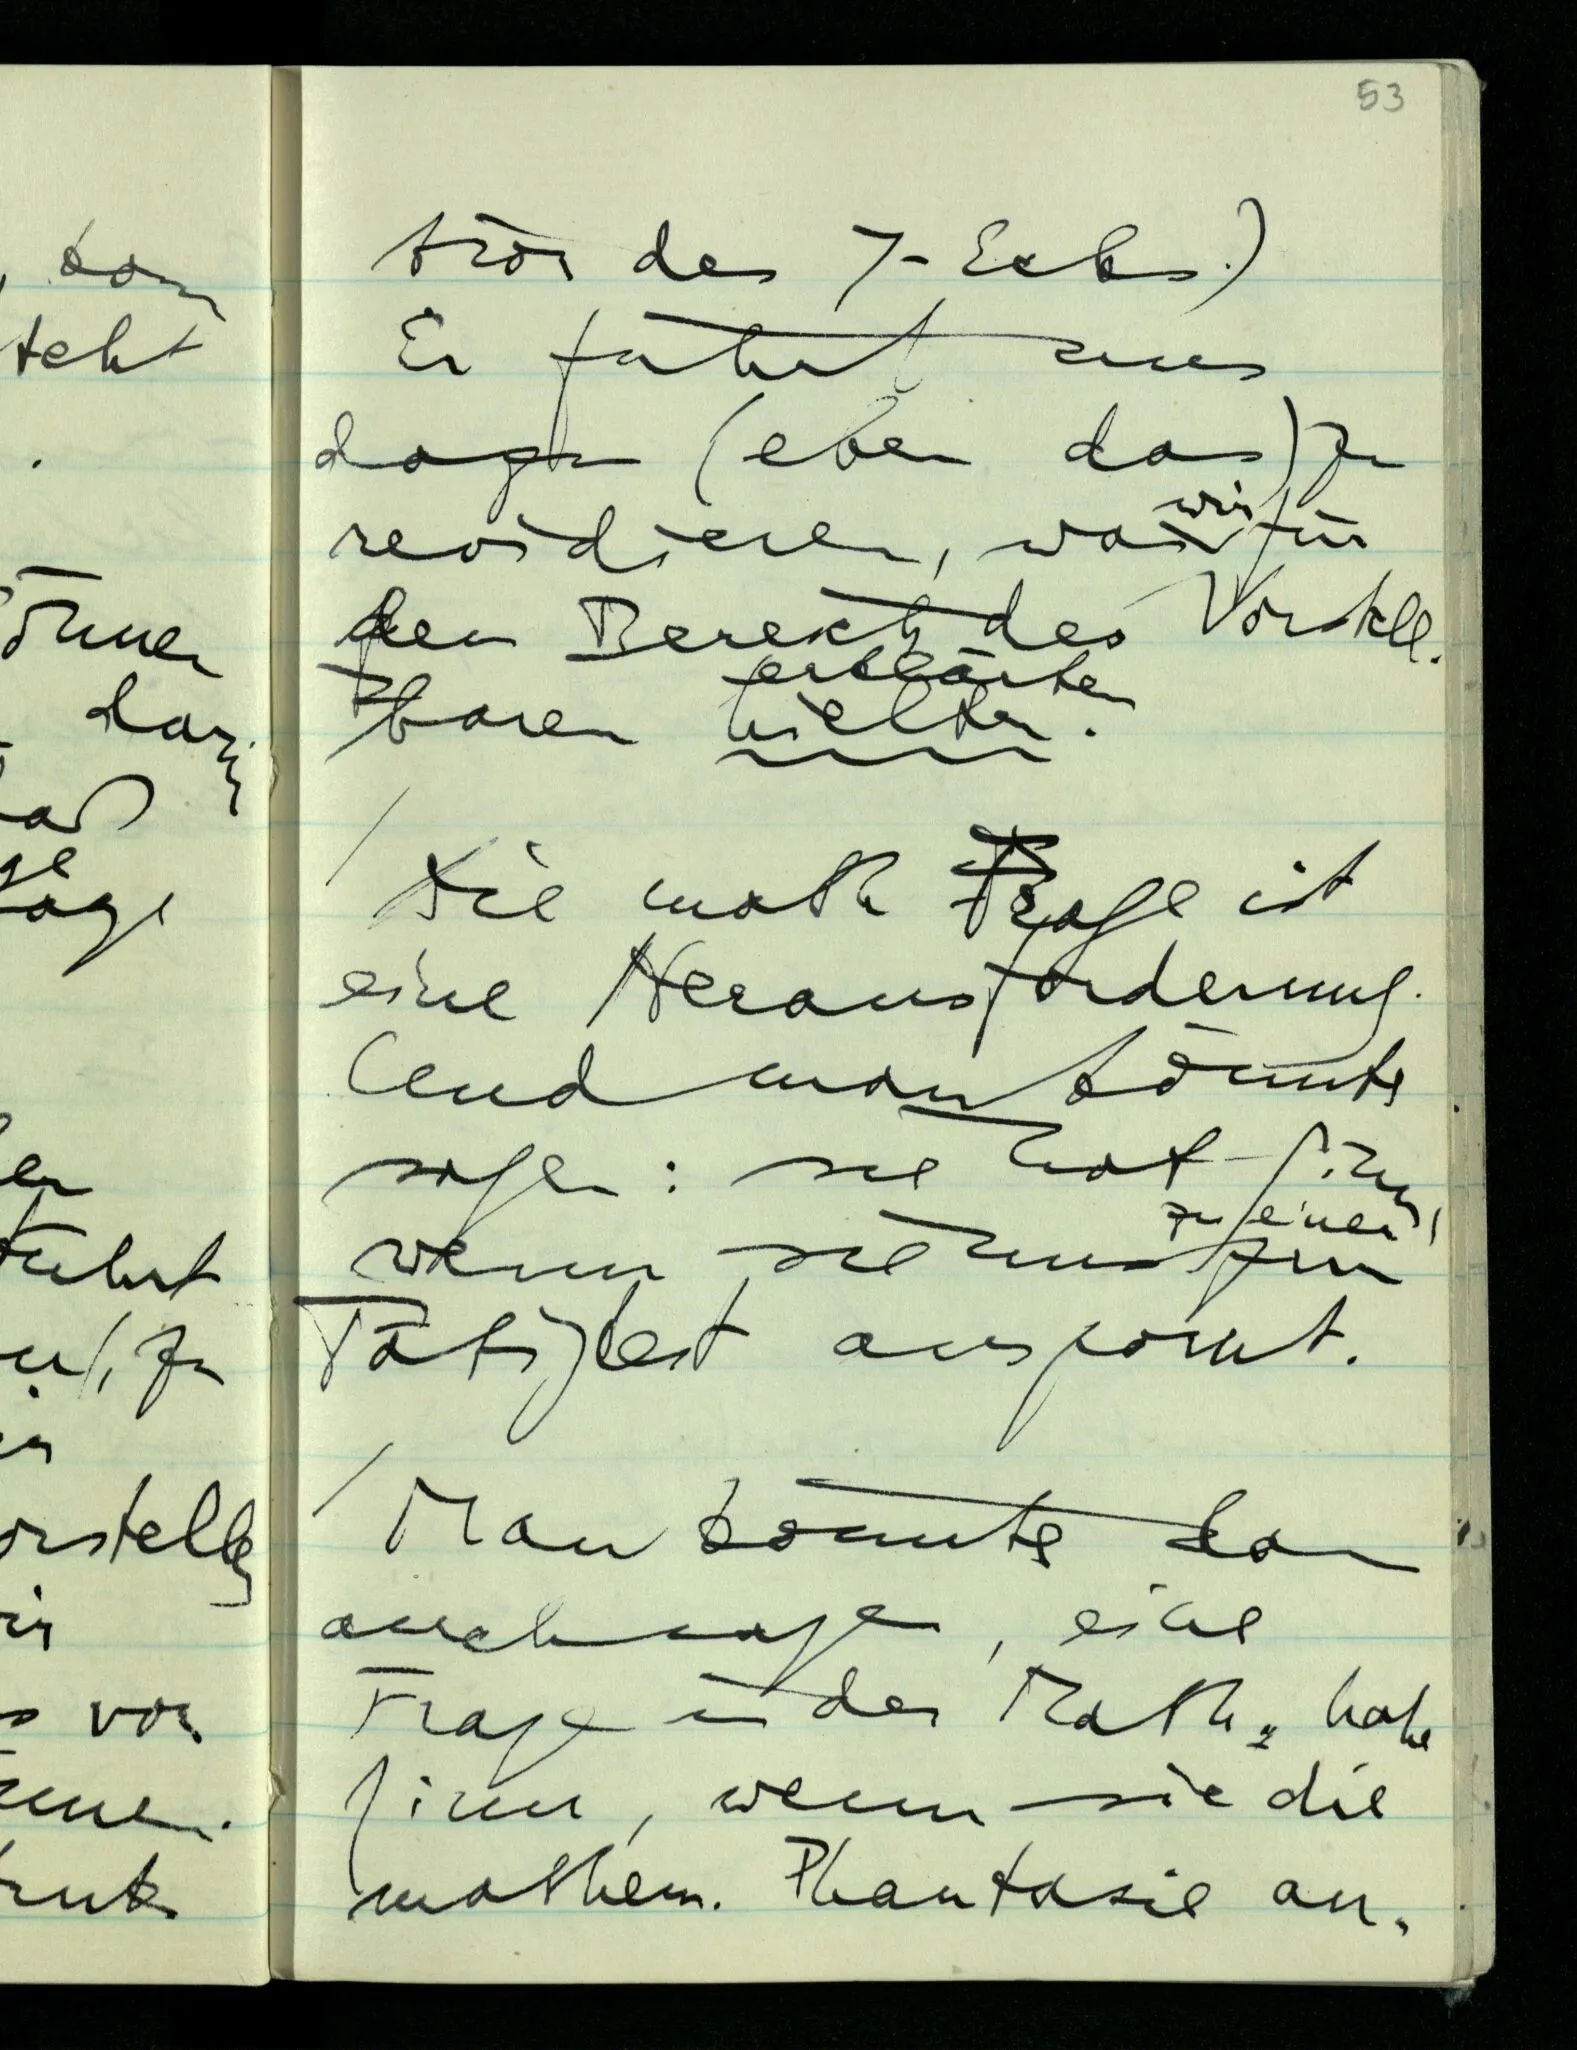 53
tion des 7-Ecks.)
Er führt uns
dazu (eben das) zu
revidieren, was wir für
den Bereich des Vorstell-
baren erklärten
hielten.
/ Die math Frage ist
eine Herausforderung.
Und man könnte
sagen: sie hat Sinn,
wenn sie uns zu einer
zur
Tätigkeit anspornt.
/ Man könnte dann
auch sagen, eine
Frage in der Math. habe
Sinn, wenn sie die
mathem. Phantasie an-
dann
teht
önnen
daran
daß
ge
age
en
führt
zu
vor